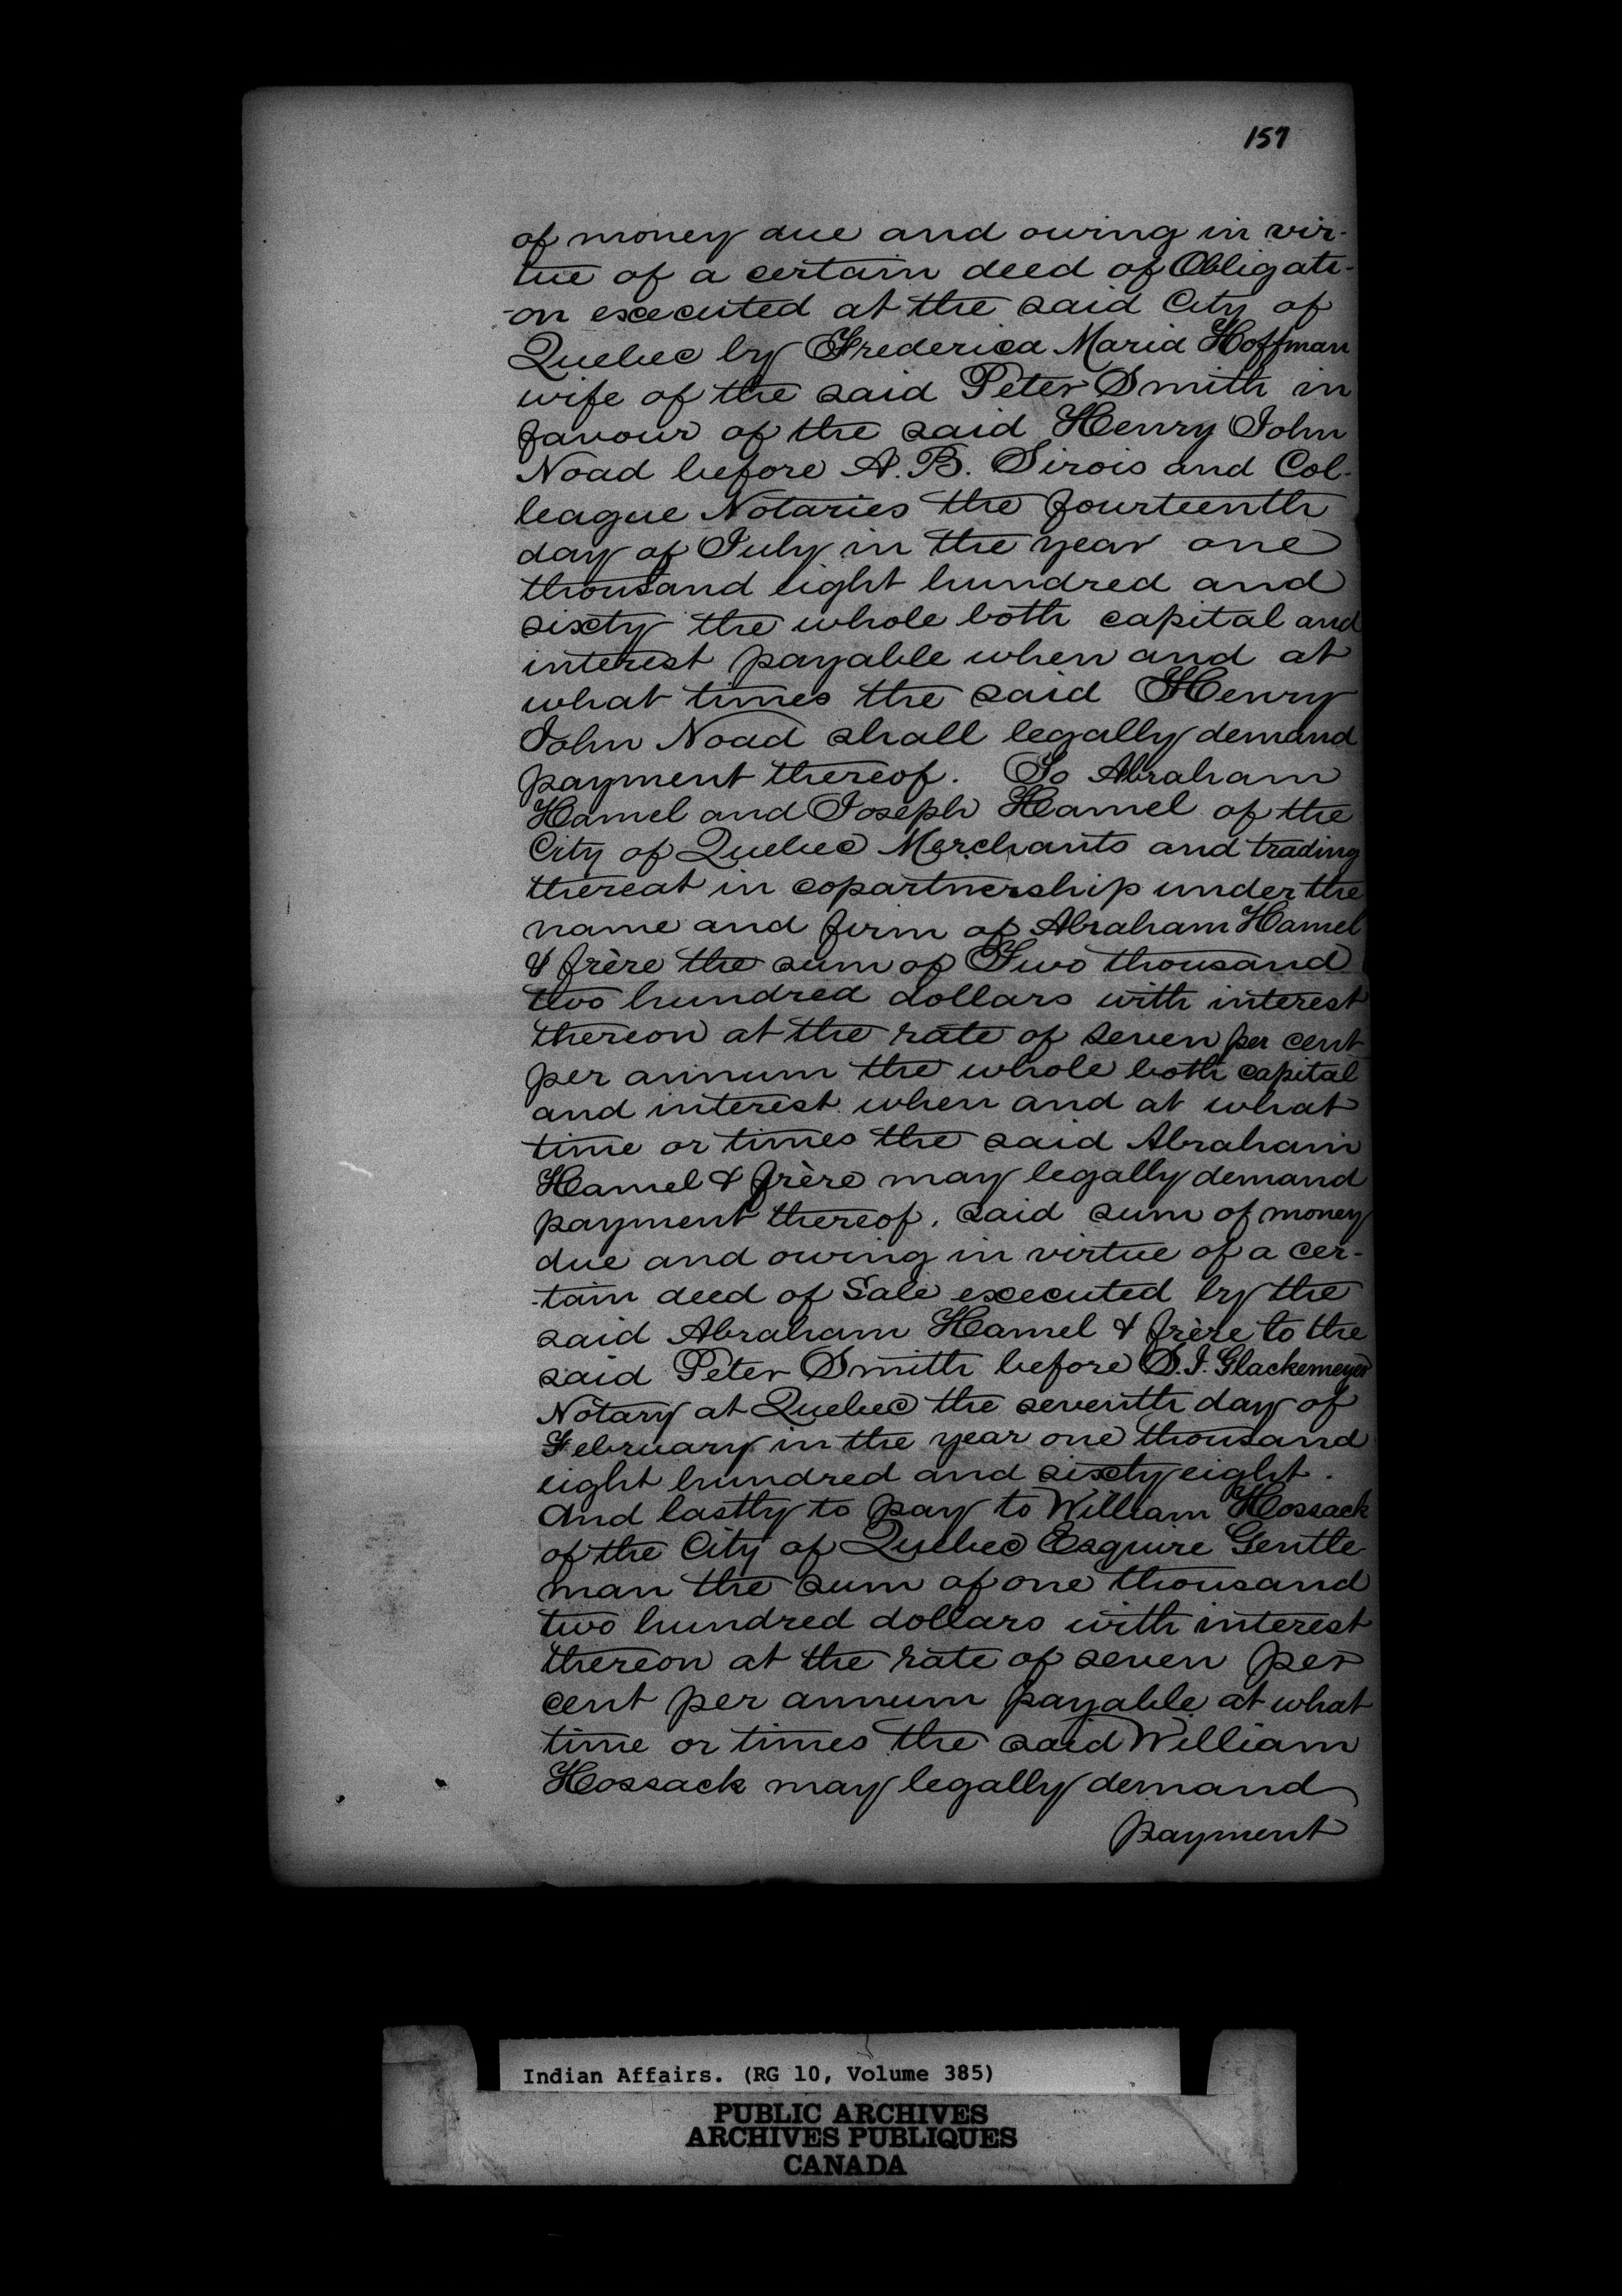 157
of money due and owing in vir-
tue of a certain deed of Obligati-
-on executed at the said City of
Quebec by Frederica Maria Hoffman
wife of the said Peter Smith in
favour of the said Henry John
Noad before A. B. Sirois and Col-
league Notaries the fourteenth
day of July in the year one
thousand eight hundred and
sixty the whole both capital and
interest payable when and at
what times the said Henry
John Noad shall legally demand
payment thereof. To Abraham
Hamel and Joseph Hamel of the
City of Quebec Merchants and trading
thereat in copartnership under the
name and firm of Abraham Hamel
& frère the sum of Two thousand
two hundred dollars with interest
thereon at the rate of seven per cent
per annum the whole both capital
and interest when and at what
time or times the said Abraham
Hamel & frère may legally demand
payment thereof, said sum of money
due and owing in virtue of a cer-
-tain deed of Sale executed by the
said Abraham Hamel & frère to the
said Peter Smith before S. I. Glackemeyer
Notary at Quebec the seventh day of
February in the year one thousand
eight hundred and sixty eight.
And lastly to pay to William Hossack
of the City of Quebec Esquire Gentle
man the sum of one thousand
two hundred dollars with interest
thereon at the rate of seven per
cent per annum payable at what
time or times the said William
Hossack may legally demand
payment
Indian Affairs. (RG 10, Volume 385)
PUBLIC ARCHIVES
ARCHIVES PUBLIQUES
CANADA